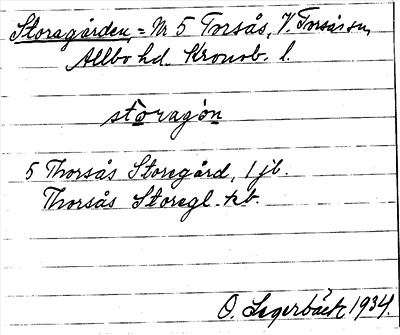 Storagården, = Nr 5 Torsås, V. Torsås sn,
Allbo hd. Kronob. l.
stòragòn
5 Thorsås Storegård, 1 jb.
Thorsås Storegl. kb.
O. Lagerbäck 1934.